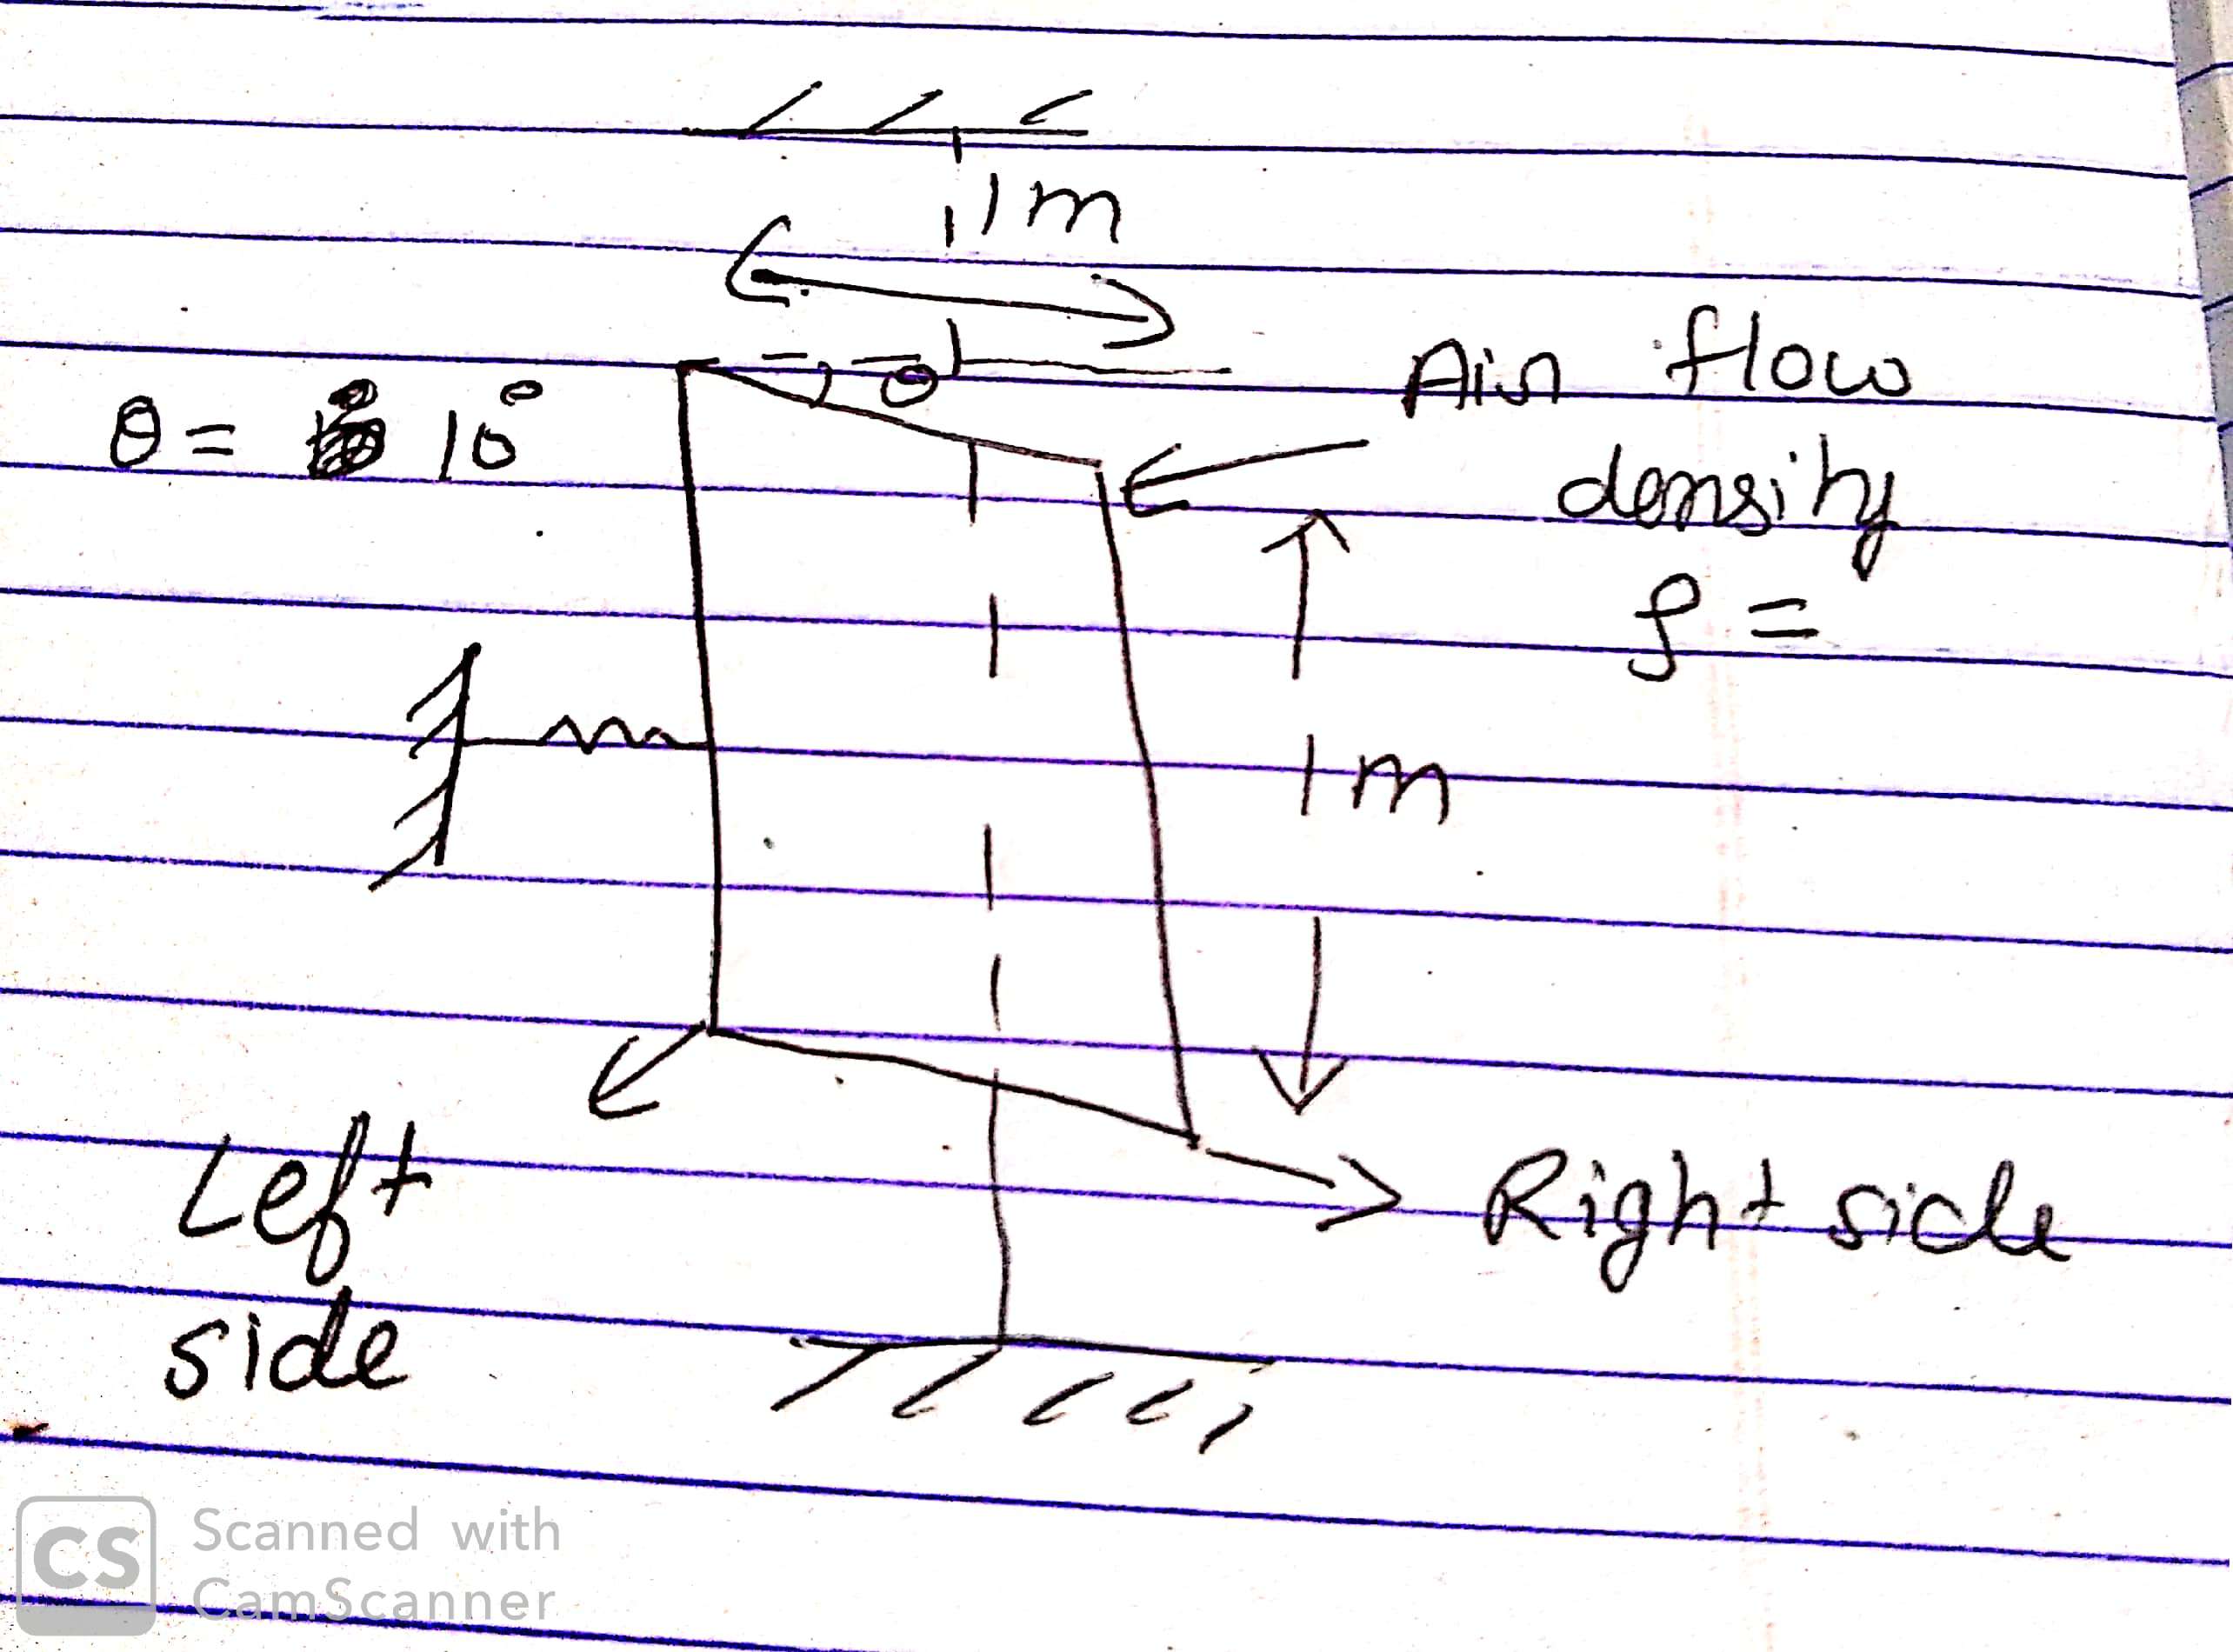 1m
θ
Air flow
θ = 10°
density
ρ =
1m
Left
side
Right side
CS Scanned with
CamScanner